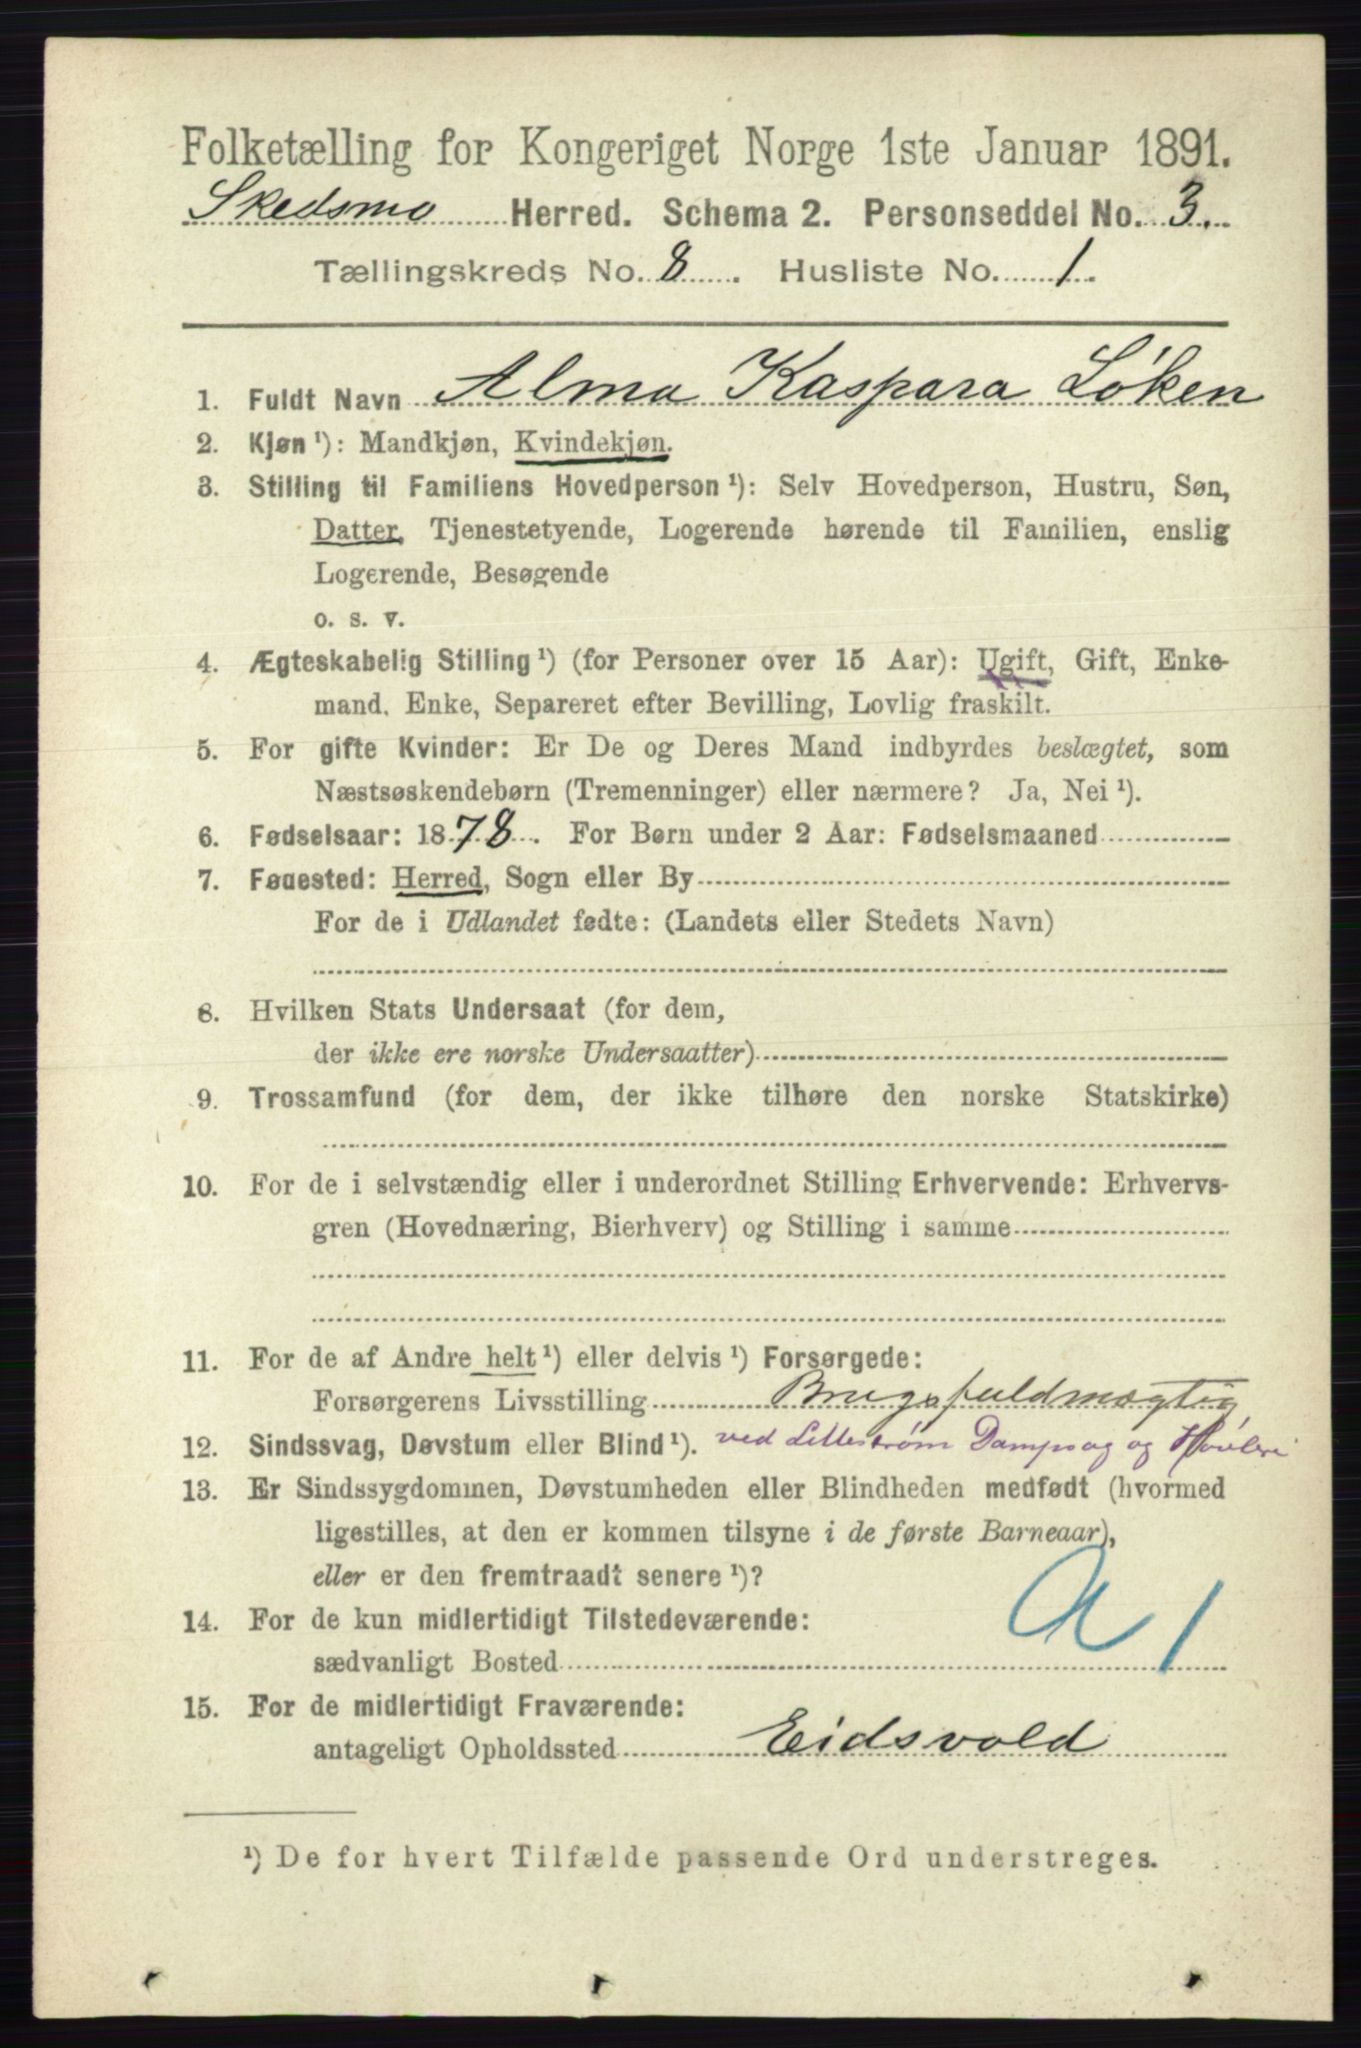 Folketælling for Kongeriget Norge 1ste Januar 1891.
Skedsmo Herred. Schema 2. Personseddel No. 3.
Tællingskreds No. 8. Husliste No. 1.
1. Fuldt Navn Alma Kaspara Løken
2. Kjøn ¹): Mandkjøn, Kvindekjøn.
3. Stilling til Familiens Hovedperson ¹): Selv Hovedperson, Hustru, Søn,
Datter, Tjenestetyende, Logerende hørende til Familien, enslig
Logerende, Besøgende
o. s. v.
4. Ægteskabelig Stilling ¹) (for Personer over 15 Aar): Ugift, Gift, Enke-
mand, Enke, Separeret efter Bevilling, Lovlig fraskilt.
5. For gifte Kvinder: Er De og Deres Mand indbyrdes beslægtet, som
Næstsøskendebørn (Tremenninger) eller nærmere? Ja, Nei ¹).
6. Fødselsaar: 1878. For Børn under 2 Aar: Fødselsmaaned
7. Fødested: Herred, Sogn eller By
For de i Udlandet fødte: (Landets eller Stedets Navn)
8. Hvilken Stats Undersaat (for dem,
der ikke ere norske Undersaatter)
9. Trossamfund (for dem, der ikke tilhøre den norske Statskirke)
10. For de i selvstændig eller i underordnet Stilling Erhvervende: Erhvervs-
gren (Hovednæring, Bierhverv) og Stilling i samme
11. For de af Andre helt ¹) eller delvis ¹) Forsørgede:
Forsørgerens Livsstilling Brugsfuldmægtig
12. Sindssvag, Døvstum eller Blind ¹). ved Lillestrøm Dampsag og Høvleri
13. Er Sindssygdommen, Døvstumheden eller Blindheden medfødt (hvormed
ligestilles, at den er kommen tilsyne i de første Barneaar),
eller er den fremtraadt senere ¹)?
A 1
14. For de kun midlertidigt Tilstedeværende:
sædvanligt Bosted
15. For de midlertidigt Fraværende:
antageligt Opholdssted Eidsvold
¹) De for hvert Tilfælde passende Ord understreges.